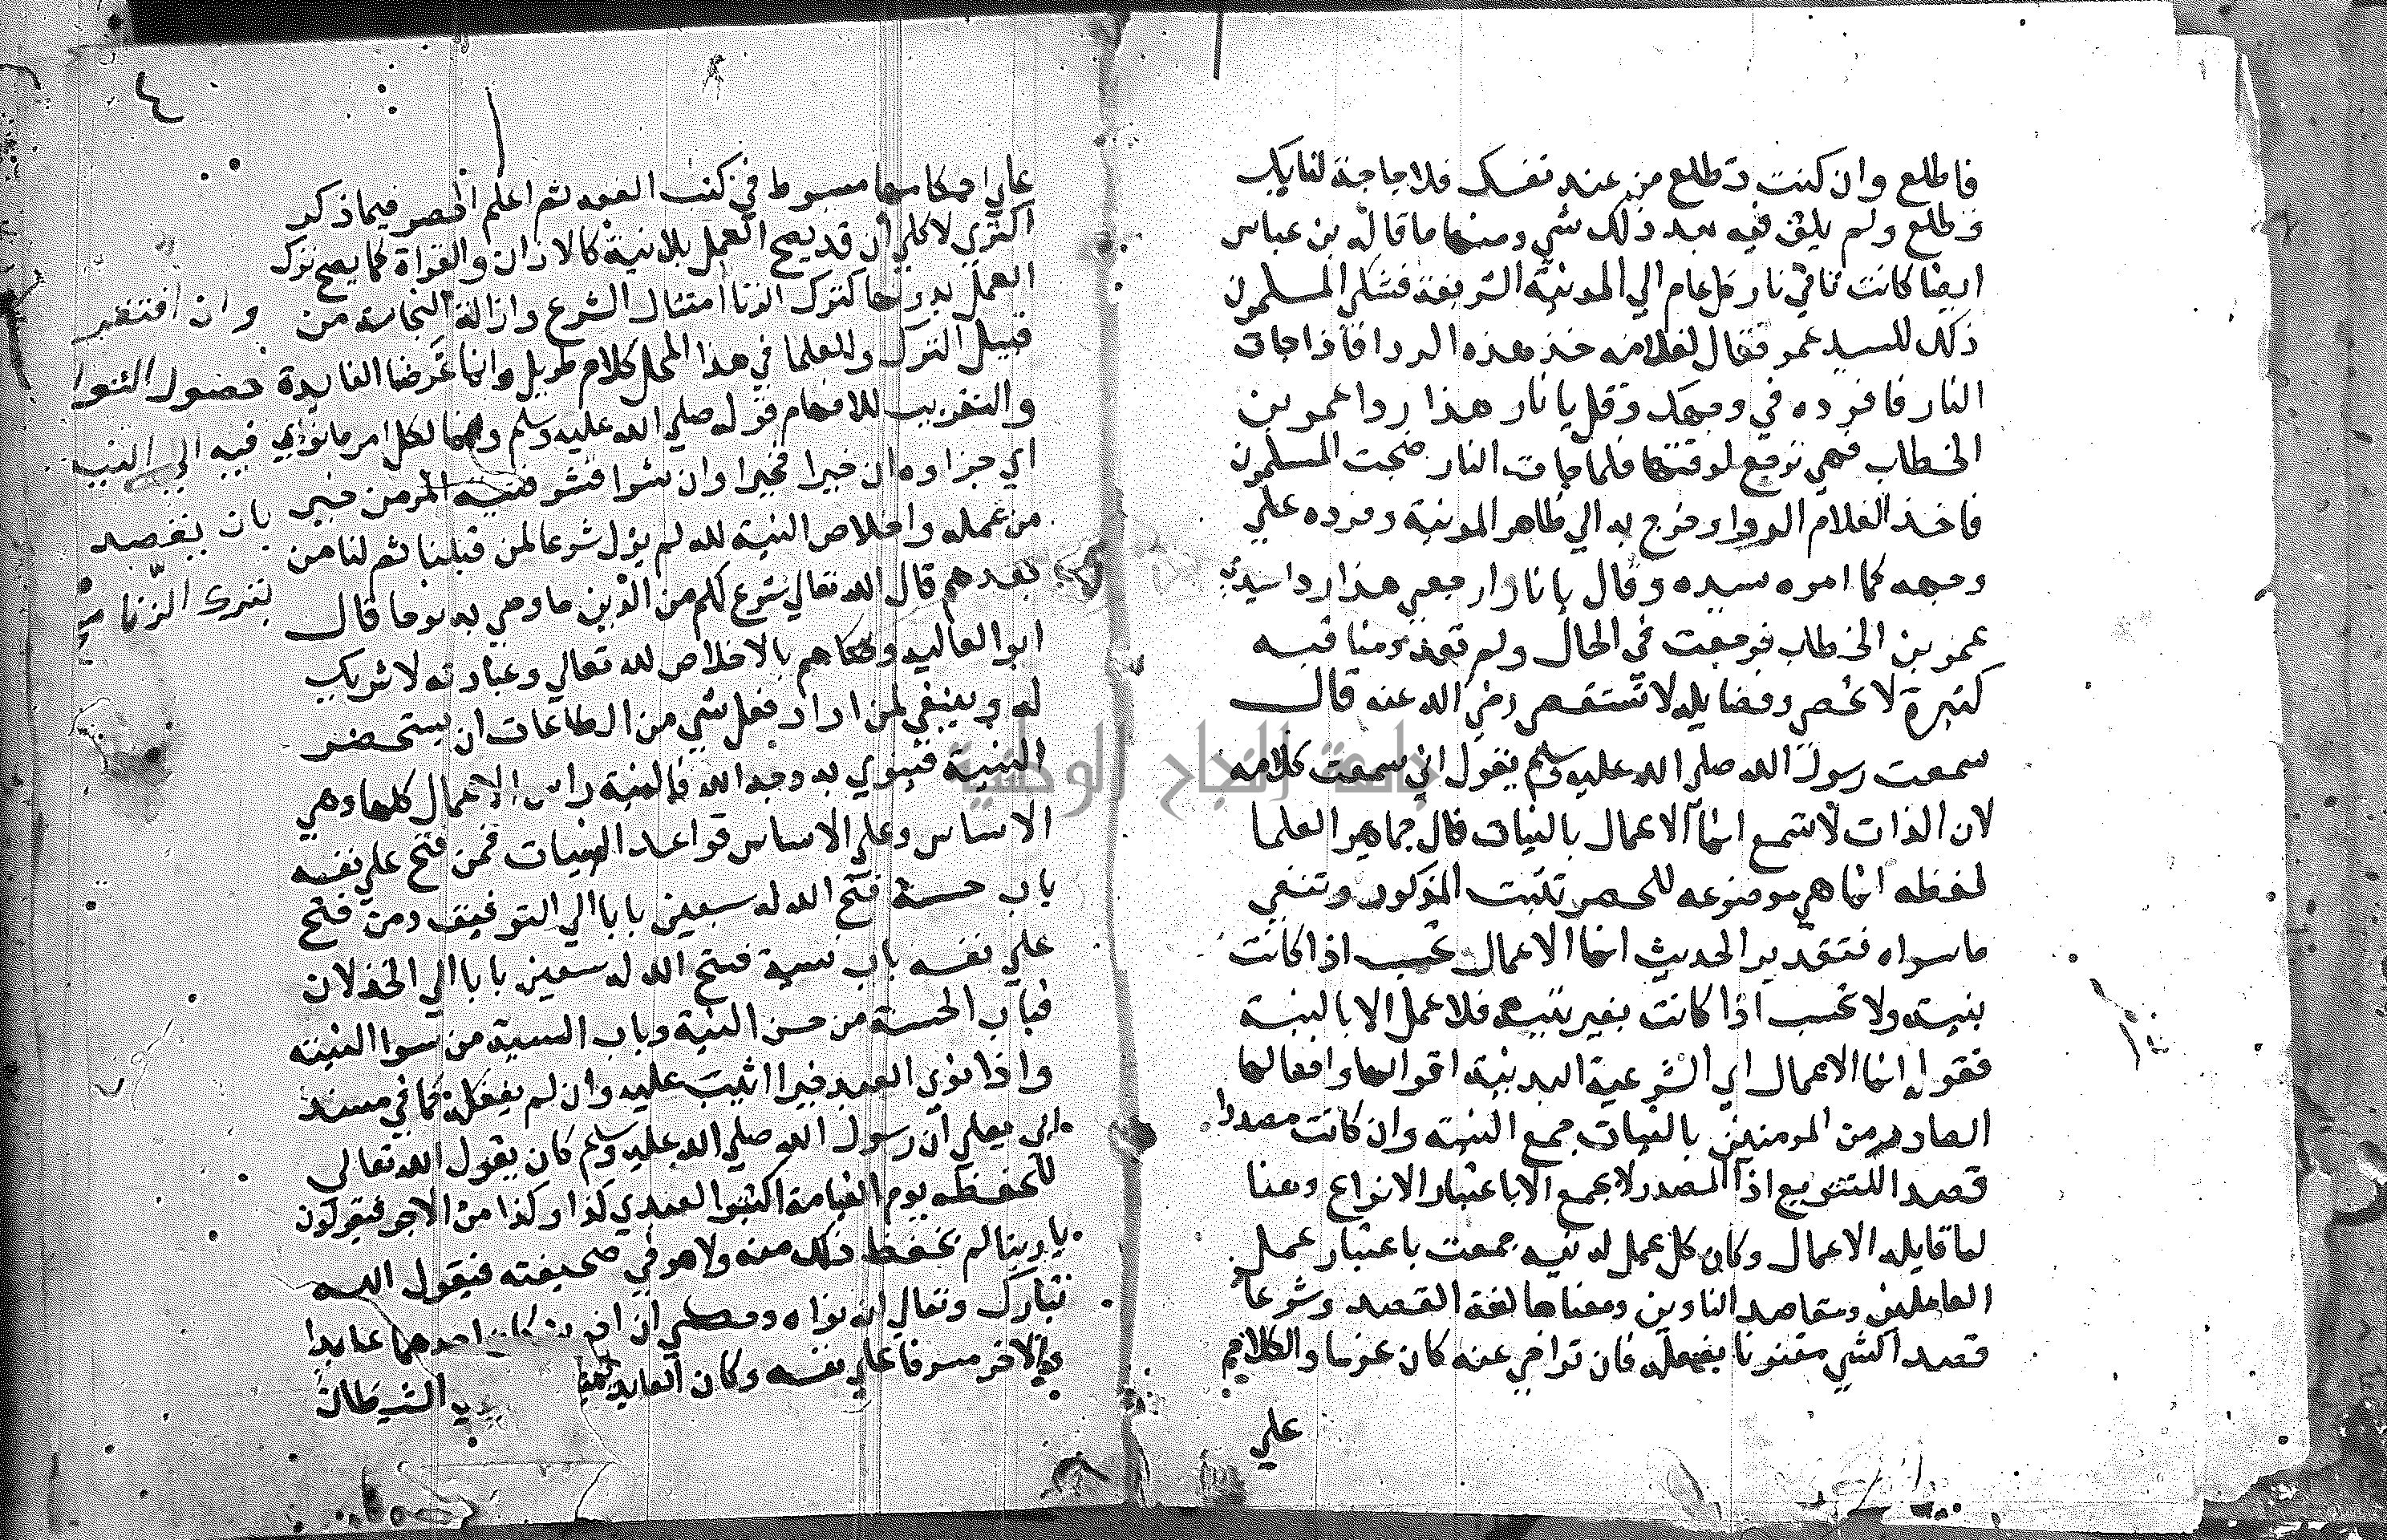 فاطلع وان كنت تطلع من عند نفسك فلا حاجة لنا بك
وطلع ولم يلق فيه بعد ذلك شي ومنها ما قال بن عباس
ايضا كانت تاتي نار كل عام الي المدينة الشريفة فشكي المسلمون
ذلك للسيد عمر فقال لغلامه خذ هذه الردا فاذا جات
النار فافرده في وجهك وقل يا نار هذا ردا عمر بن
الخطاب فهي ترجع لوقتها فلما جات النار ضجت المسلمون
فاخذ الغلام الردا وخرج به الي ظاهر المدينة وفرده علي
وجهه كما امره سيده وقال يا نار ارجعي هذا ردا سيدي
عمر بن الخطاب فرجعت في الحال ولم تعد ومناقبه
كثيرة لا تحصر وفضايله لا تستقصي رضي الله عنه قال
سمعت رسول الله صلي الله عليه وسلم يقول اني سمعت كلامه
لان الذات لا تسمع انما الاعمال بالنيات قال جماهير العلما
لفظه انما هي موضوعه للحصر تثبت المذكور وتنفي
ما سواه فتقدير الحديث انما الاعمال تحسب اذا كانت
بنية ولا تحسب اذا كانت بغير نية فلا عمل الا بالنية
فقوله انما الاعمال اي الشرعية البدنية اقوالها وافعالها
الصادرة من المومنين بالنيات جمع النية وان كانت مصدرا
قصد اللتنويع اذ المصدر لا يجمع الا باعتبار الانواع وهنا
لما قابله الاعمال وكان كل عمل له نيه جمعت باعتبار عمل
العاملين ومقاصد الناوين ومعناها لغة القصد وشرعا
قصد الشي مقترنا بفعله فان تراخي عنه كان عزما والكلام
علي
٤
علي احكامها مبسوط في كتب الفقه ثم اعلم الحصر فيما ذكر
اكثري لا كلي ان قد يصح العمل بلا نية كالاذان والقراة كما يصح ترك
العمل بدونها كترك الزنا امتثال الشرع وازالة النجاسة من
وان افتقر
قبيل الترك وللعلما في هذا المحل كلام طويل وانما غرضنا الفايدة
حصول الثواب
والتقريب للافهام قوله صلي الله عليه وسلم وانما لكل امر ما نوي
فيه الي النية
اي جزاوه ان خيرا فخيرا وان شرا فشر فنية المومن خير
بان يقصد
من عمله واخلاص النية لله لم يزل شرعا لمن قبلنا ثم لنا من
بترك الزنا
بعدهم قال الله تعالي شرع لكم من الدين ما وصي به نوحا قال
ابو العاليه وصاهم بالاخلاص لله تعالي وعبادته لا شريك
له وينبغي لمن اراد فعل شي من الطاعات ان يستحضر
النية فينوي به وجه الله فالنية راس الاعمال كلها وهي
الاساس وعلي الاساس قواعد النيات فمن فتح علي نفسه
باب حسنة فتح الله له سبعين بابا الي التوفيق ومن فتح
علي نفسه باب سية فتح الله له سبعين بابا الي الخذلان
فباب الحسنة من حسن النية وباب السية من سوا النية
واذا نوي العبد خيرا اثيب عليه وان لم يفعله كما في مسند
ابي يعلي ان رسول الله صلي الله عليه وسلم كان يقول الله تعالي
للحفظه يوم القيامة اكتبوا لعبدي كذا وكذا من الاجر فيقولون
يا ربنا لم نحفظ ذلك منه ولا هو في صحيفته فيقول الله
تبارك وتعالي انه نواه وحكي ان اخوين كان احدهما عابدا
والاخر مسرفا علي نفسه وكان العابد الشيطان
جامعة النجاح الوطنية